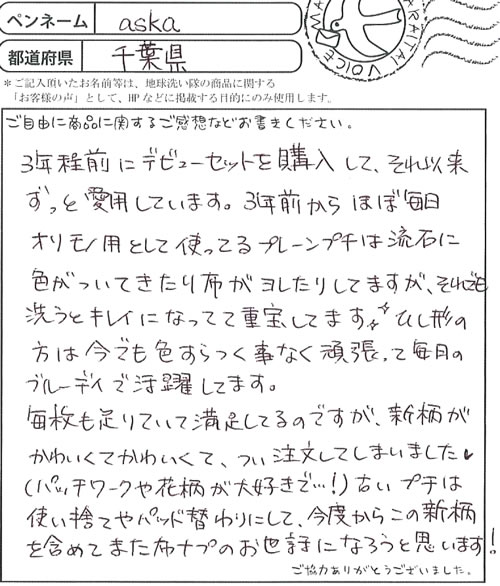 ペンネーム aska
都道府県 千葉県
*ご記入頂いたお名前等は、地球洗い隊の商品に関する
「お客様の声」として、HPなどに掲載する目的にのみ使用します。
ご自由に商品に関するご感想などお書きください。
3年程前にデビューセットを購入して、それ以来
ずっと愛用しています。3年前からほぼ毎日
オリモノ用として使ってるプレーンプチは流石に
色がついてきたり布がヨレたりしてますが、それでも
洗うとキレイになってて重宝してます ひし形の
方は今でも色すらつく事なく頑張って毎月の
ブルーデイで活躍してます。
毎枚も足りていて満足してるのですが、新柄が
かわいくてかわいくて、つい注文してしまいました
(パッチワークや花柄が大好きで…!)古いプチは
使い捨てやパッド替わりにして、今度からこの新柄
を含めてまた布ナプのお世話になろうと思います!
ご協力ありがとうございました。